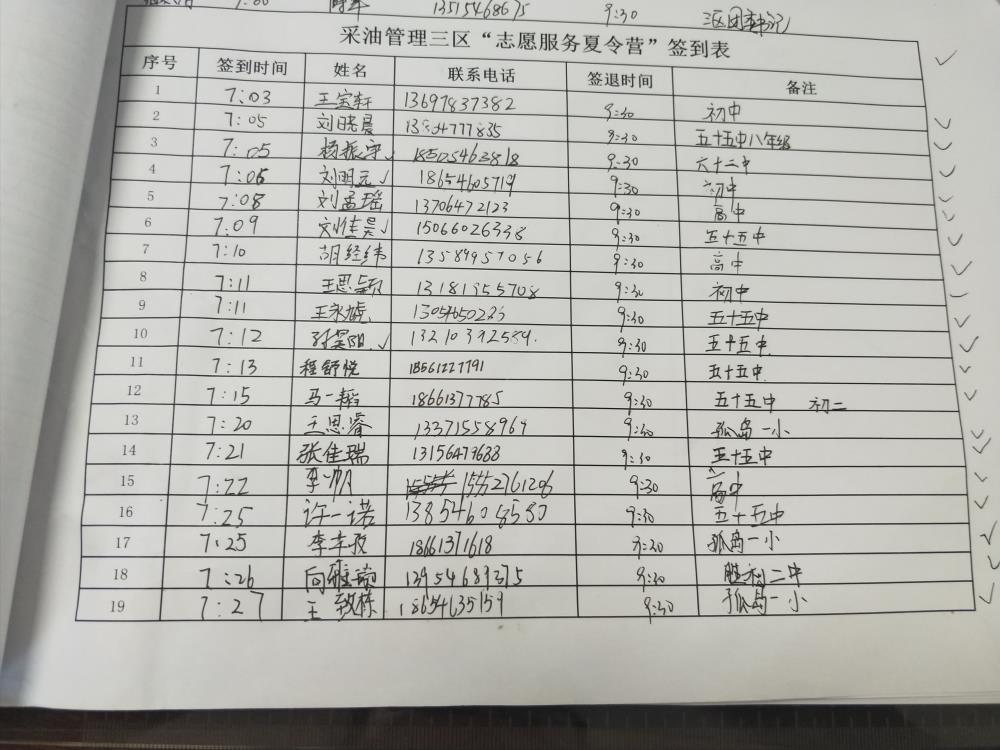 7:00 13515468675 9:30
采油管理三区“志愿服务夏令营”签到表
序号 签到时间 姓名 联系电话 签退时间 备注
1 7:03 王宝轩 13697837382 9:30 初中
2 7:05 刘晓晨 9:30 五十五中八年级
3 7:05 杨振宇 18505463818 9:30 六十二中
4 7:06 刘明元 18654605719 9:30 初中
5 7:08 刘孟瑶 13706472123 9:30 高中
6 7:09 刘佳昊 15066026338 9:30 五十五中
7 7:10 胡经纬 13589957056 9:30 高中
8 7:11 王思颖 13181355708 9:30 初中
9 7:11 9:30 五十五中
10 7:12 13210392589. 9:30 五十五中
11 7:13 程舒悦 18561227791 9:30 五十五中
12 7:15 马一 18661377785 9:30 五十五中 初二
13 7:20 王思睿 13371558969 9:30 孤岛一小
14 7:21 张佳瑞 13156479688 9:30 五十五中
15 7:22 李一帆 15552761206 9:30 高中
16 7:25 许一诺 13854608580 9:30 五十五中
17 7:25 18661371618 9:30 孤岛一小
18 7:26 13954689375 9:30 胜利二中
19 7:27 王 18654635159 9:30 孤岛一小